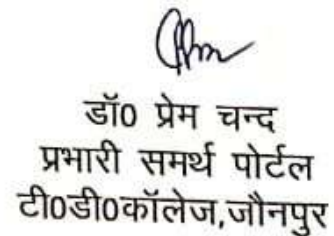 डॉ0 प्रेम चन्द
प्रभारी समर्थ पोर्टल
टी0डी0कॉलेज,जौनपुर